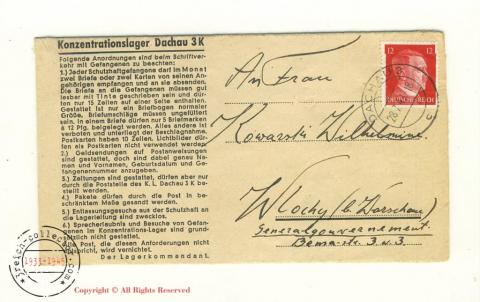 Konzentrationslager Dachau 3 K
Folgende Anordnungen sind beim Schriftver-
kehr mit Gefangenen zu beachten:
1.) Jeder Schutzhaftgefangene darf im Monat
zwei Briefe oder zwei Karten von seinen An-
gehörigen empfangen und an sie absenden.
Die Briefe an die Gefangenen müssen gut
lesbar mit Tinte geschrieben sein und dür-
fen nur 15 Zeilen auf einer Seite enthalten.
Gestattet ist nur ein Briefbogen normaler
Größe. Briefumschläge müssen ungefüttert
sein. In einem Briefe dürfen nur 5 Briefmarken
à 12 Pfg. beigelegt werden. Alles andere ist
verboten und unterliegt der Beschlagnahme.
Postkarten haben 10 Zeilen. Lichtbilder dür-
fen als Postkarten nicht verwendet werden.
2.) Geldsendungen auf Postanweisungen
sind gestattet, doch sind dabei genau Na-
men und Vornamen, Geburtsdatum und Ge-
fangenennummer anzugeben.
3.) Zeitungen sind gestattet, dürfen aber nur
durch die Poststelle des K. L. Dachau 3 K be-
stellt werden.
4.) Pakete dürfen durch die Post in be-
schränktem Maße gesandt werden.
5.) Entlassungsgesuche aus der Schutzhaft an
die Lagerleitung sind zwecklos.
6.) Sprecherlaubnis und Besuche von Gefan-
genen im Konzentrations-Lager sind grund-
sätzlich nicht gestattet.
Alle Post, die diesen Anforderungen nicht
entspricht, wird vernichtet.
Der Lagerkommandant.
An Frau
Kowarski Wilhelmine
Wlochy (b/Warschau)
Generalgouvernement.
Bema-str. 3 w. 3.
12 12
DEUTSCHES REICH
DACHAU 3
3reich-collector.com
1933-1945
Copyright © All Rights Reserved